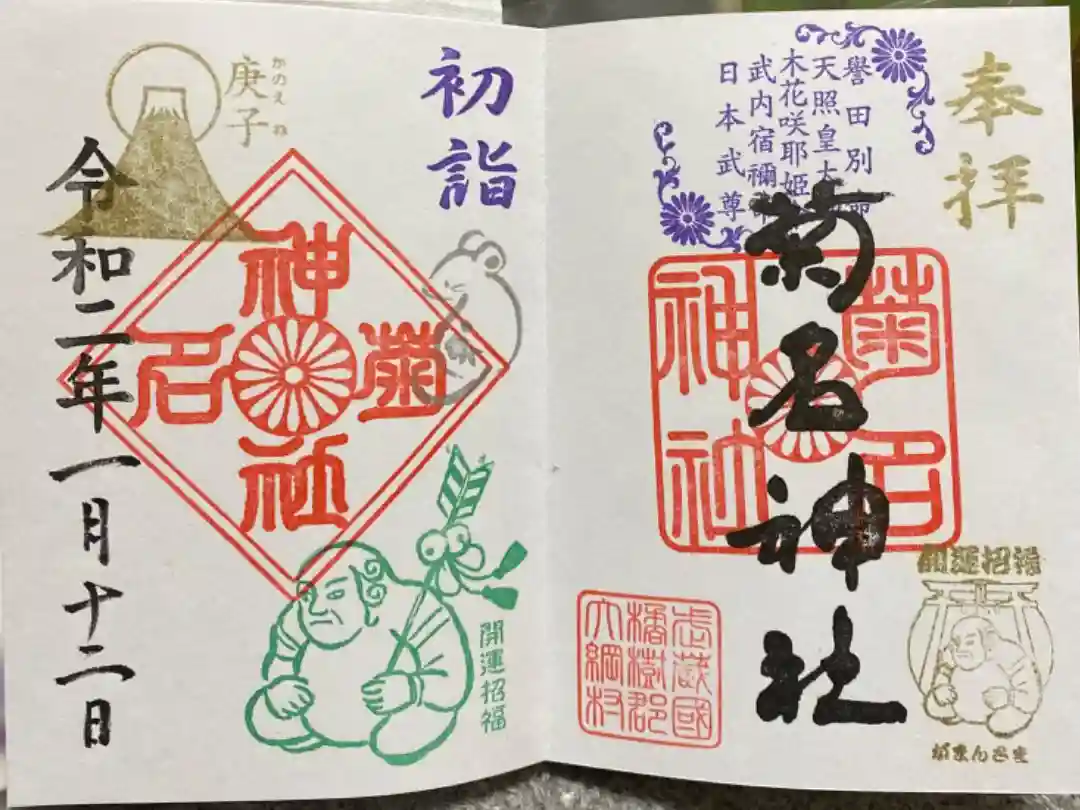 奉拝
譽田別命
天照皇大
木花咲耶姫
武内宿禰命
日本武尊
菊名神社
菊名
神社
開運招福
がまんさま
武蔵國
橘樹郡
大綱村
初詣
庚子
かのえ ね
神
菊
名
社
開運招福
令和二年一月十二日